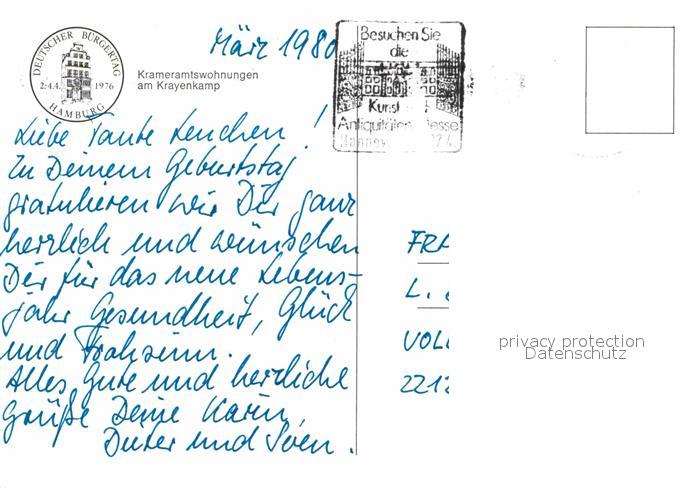 DEUTSCHER BÜRGERTAG
2.-4.4. 1976
HAMBURG
Krameramtswohnungen
am Krayenkamp
März 1980
Besuchen Sie
die
Kunst
Antiquitäten Messe
Liebe Tante Lenchen!
Zu Deinem Geburtstag
gratulieren wir Dir ganz
herzlich und wünschen
Dir für das neue Lebens-
jahr Gesundheit, Glück
und Frohsinn.
Alles Gute und herzliche
Grüße Deine Karin,
Dieter und Sven.
FRA
L.
VOLL
2212
privacy protection
Datenschutz